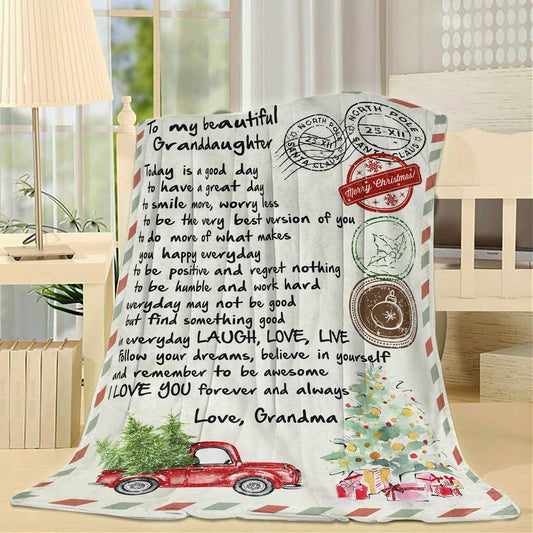 To my beautiful
Granddaughter
Today is a good day
to have a great day
to smile more, worry less
to be the very best version of you
to do more of what makes
you happy everyday
to be positive and regret nothing
to be humble and work hard
everyday may not be good
but find something good
in everyday LAUGH, LOVE, LIVE
Follow your dreams, believe in yourself
and remember to be awesome
I LOVE YOU forever and always
Love, Grandma
NORTH POLE
25·XII
SANTA CLAUS
NORTH POLE
25-XII
SANTA CLAUS
Merry Christmas!